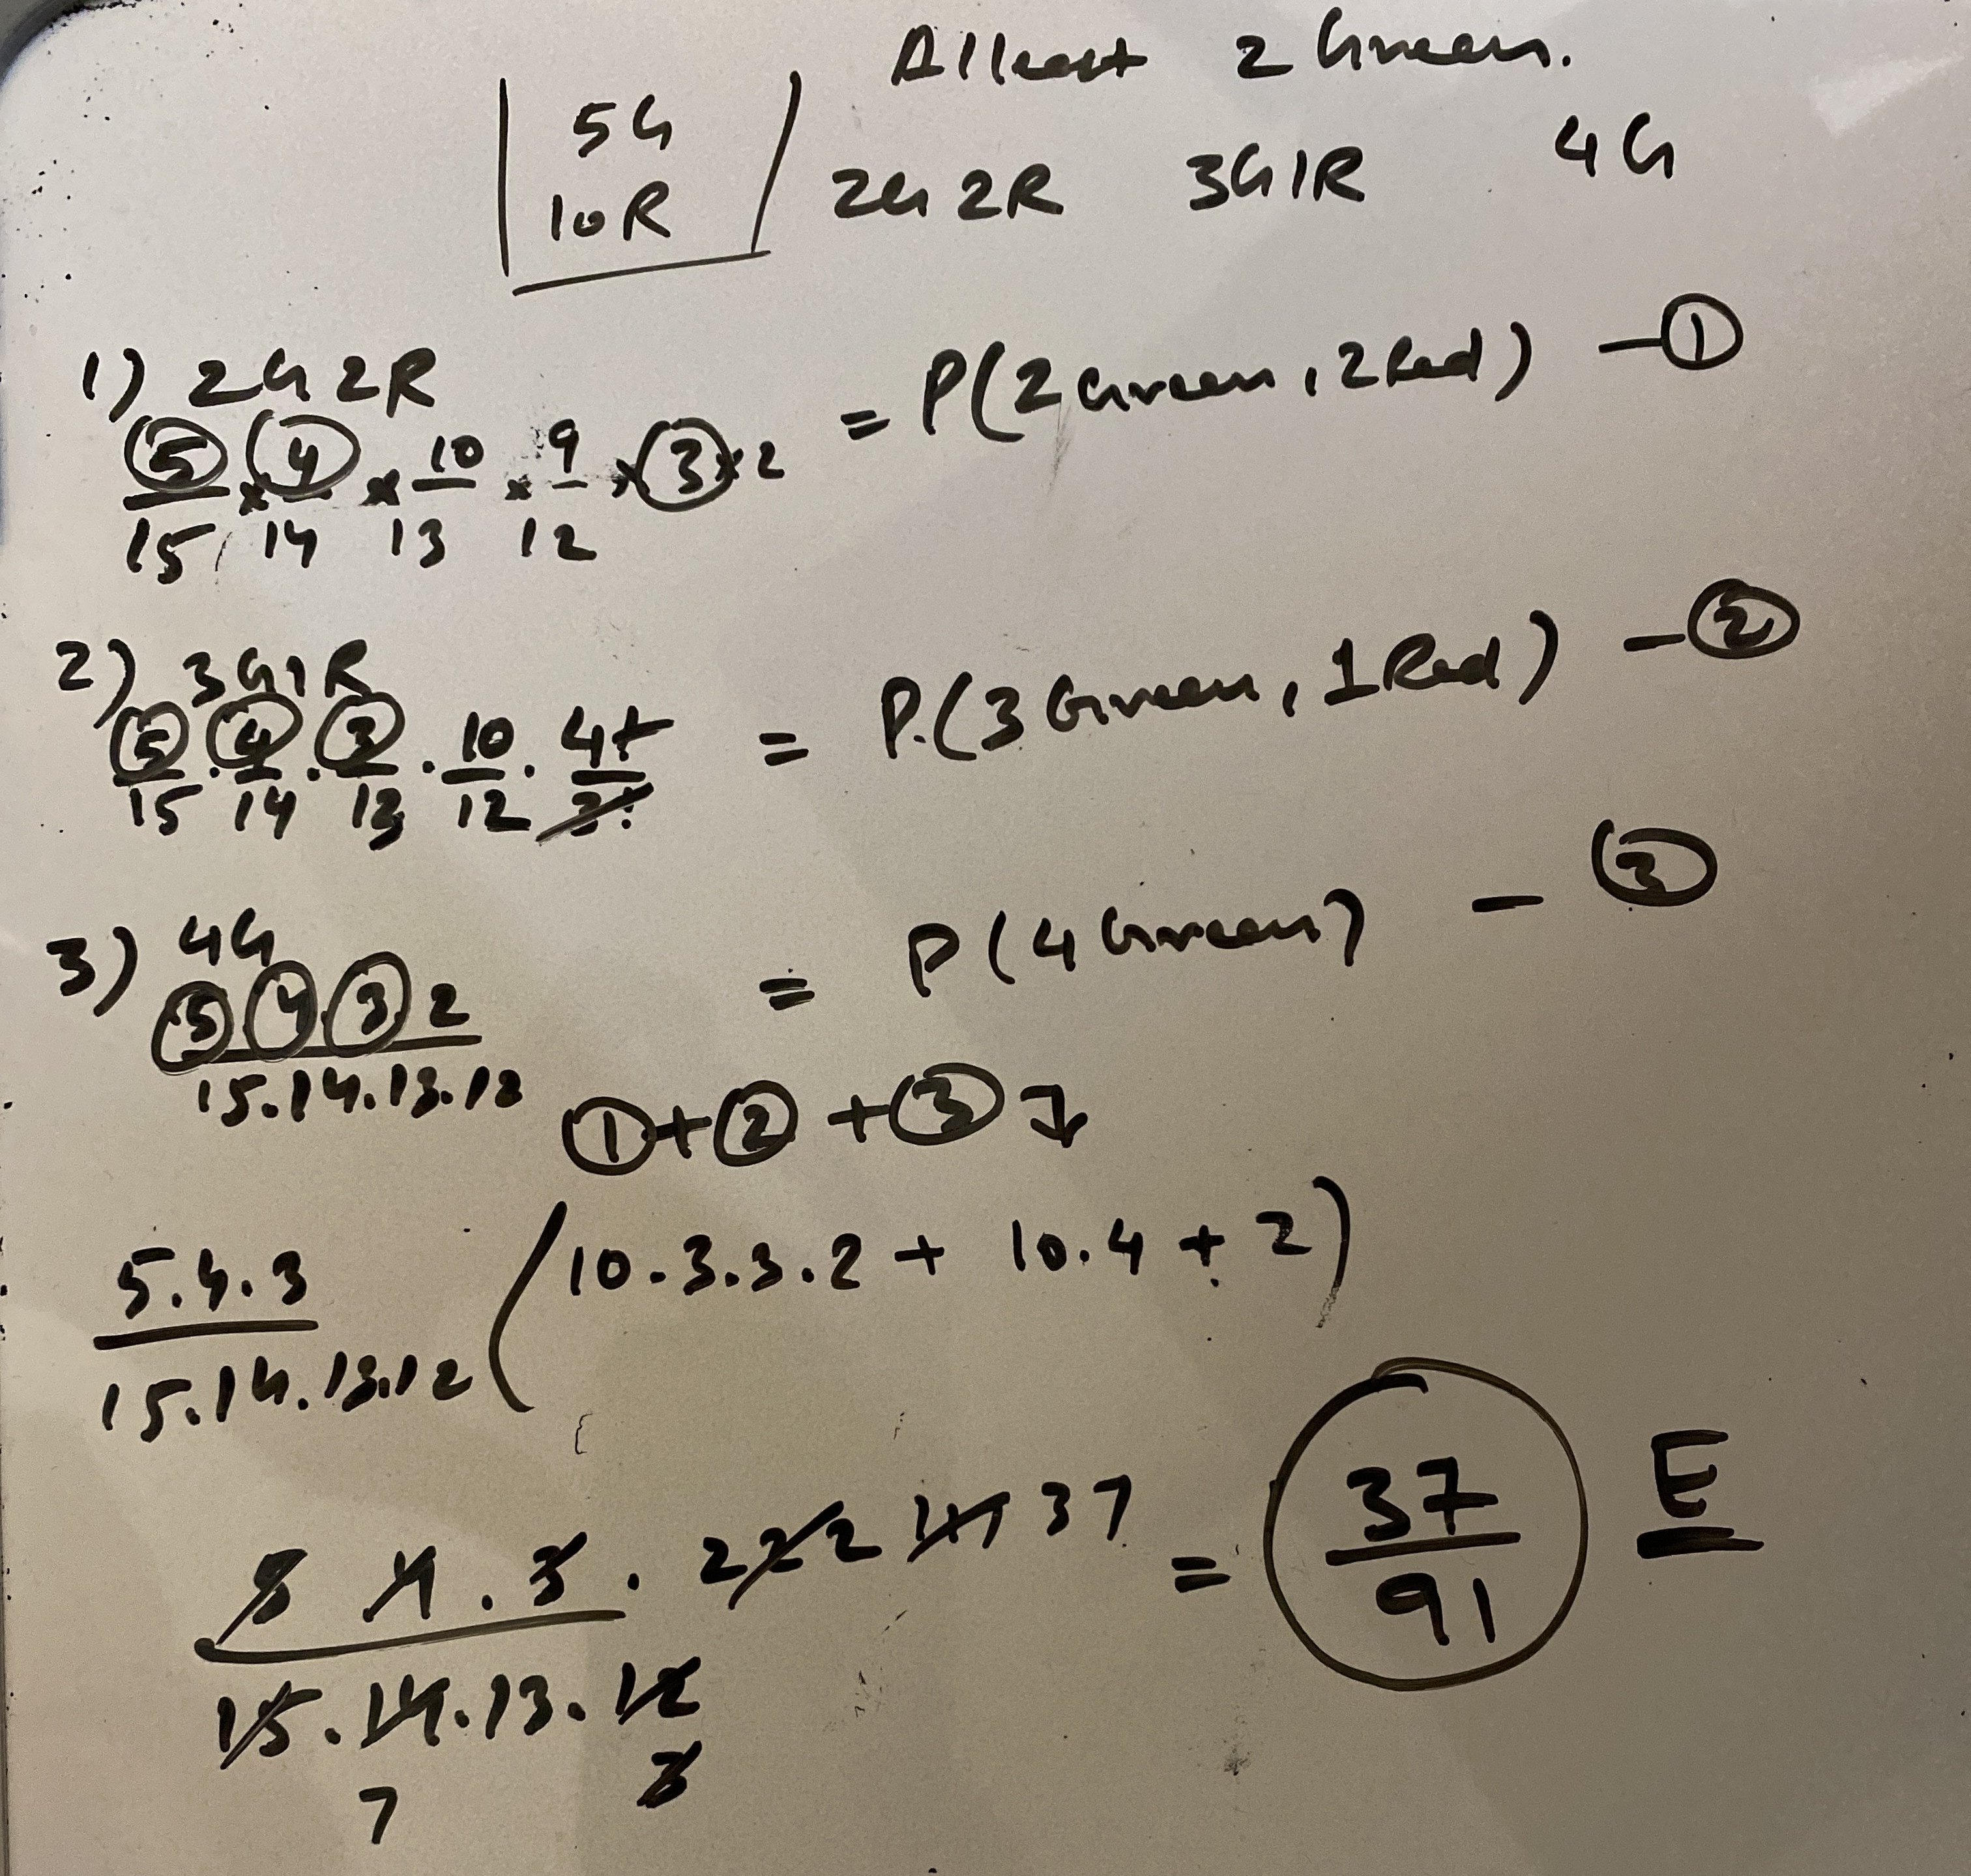 Atleast 2 Green.
5G
10R
2G 2R 3G1R 4G
1) 2G2R
5/15 × 4/14 × 10/13 × 9/12 × 3 × 2 = P(2 Green, 2 Red) — ①
2) 3G1R
5/15 · 4/14 · 3/13 · 10/12 · 4 = P.(3 Green, 1 Red) — ②
3) 4G
5 4 3 2 / 15.14.13.12 = P(4 Green) — ③
① + ② + ③
5.4.3 / 15.14.13.12 (10.3.3.2 + 10.4 + 2)
5 4 . 3 . 222 111 37 / 15 . 14 . 13 . 12 = 37/91 E
7 3